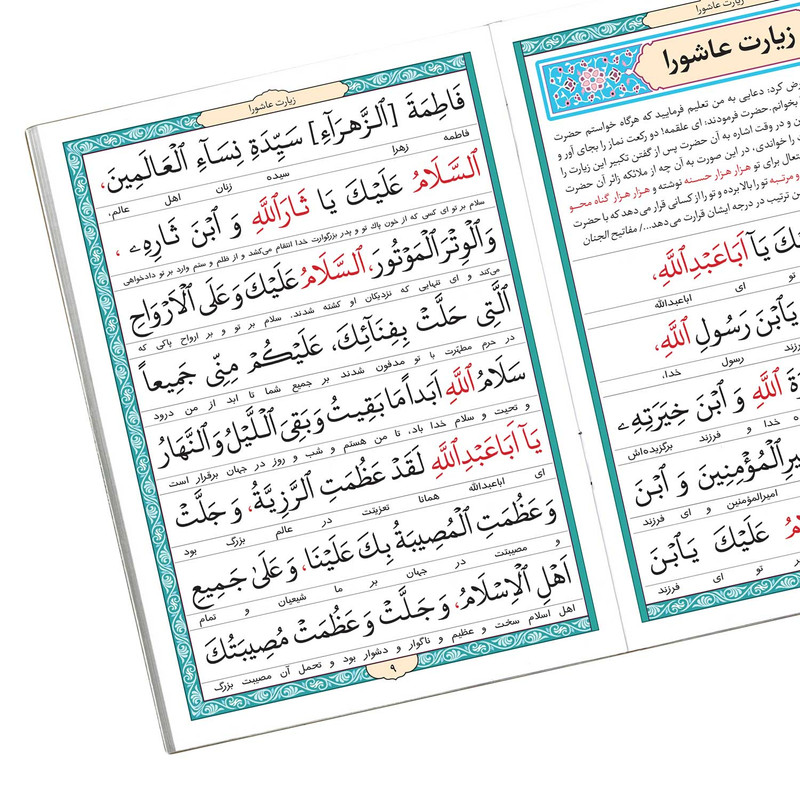 زیارت عاشورا
زیارت عاشورا
رض کرد: دعایی به من تعلیم فرمایید که هرگاه خواستم حضرت
بخوانم. حضرت فرمودند: ای علقمه! دو رکعت نماز را بجای آور و
ن و در وقت اشاره به آن حضرت پس از گفتن تکبیر این زیارت را
را خواندی، در این صورت به آن چه از ملائکه زائر آن حضرت
متعال برای تو هزار هزار حسنه نوشته و هزار هزار گناه محو
و مرتبه تو را بالا برده و تو را از کسانی قرار می‌دهد که با حضرت
ن ترتیب در درجه ایشان قرارت می‌دهد.../ مفاتیح الجنان
كَ يَآ اَبَاعَبْدِاللّٰهِ،
تو ای اباعبدالله
يَابْنَ رَسُولِ اللّٰهِ،
رزند رسول خدا،
ةَ اللّٰهِ وَ ابْنَ خِيَرَتِهِ
خدا و فرزند برگزیده‌اش
يرِالْمُؤْمِنِينَ وَ ابْنَ
امیرالمؤمنین و ای فرزند
عَلَيْكَ يَابْنَ
تو ای فرزند
زیارت عاشورا
فَاطِمَةَ [الزَّهْرَآءِ] سَيِّدَةِ نِسَآءِ الْعَالَمِينَ،
فاطمه زهرا سیده زنان اهل عالم.
اَلسَّلَامُ عَلَيْكَ يَا ثَارَاللّٰهِ وَ ابْنَ ثَارِهِ،
سلام بر تو ای کسی که از خون پاک تو و پدر بزرگوارت خدا انتقام می‌کشد و از ظلم و ستم وارد بر تو دادخواهی
وَالْوِتْرَ الْمَوْتُورَ، اَلسَّلَامُ عَلَيْكَ وَعَلَى الْاَرْوَاحِ
می‌کند و ای تنهایی که نزدیکان او کشته شدند. سلام بر تو و بر ارواح پاکی که
الَّتِى حَلَّتْ بِفِنَآئِكَ، عَلَيْكُمْ مِنِّى جَمِيعاً
در حرم مطهّرت با تو مدفون شدند بر جمیع شما تا ابد از من درود
سَلَامُ اللّٰهِ اَبَداً مَا بَقِيتُ وَ بَقِىَ اللَّيْلُ وَ النَّهَارُ
و تحیت و سلام خدا باد، تا من هستم و شب و روز در جهان برقرار است
يَآ اَبَاعَبْدِاللّٰهِ لَقَدْ عَظُمَتِ الرَّزِيَّةُ، وَ جَلَّتْ
ای اباعبدالله همانا تعزیتت در عالم بزرگ بود
وَ عَظُمَتِ الْمُصِيبَةُ بِكَ عَلَيْنَا، وَ عَلَىٰ جَمِيعِ
و مصیبتت در جهان بر ما شیعیان و تمام
اَهْلِ الْاِسْلَامِ، وَ جَلَّتْ وَ عَظُمَتْ مُصِيبَتُكَ
اهل اسلام سخت و عظیم و ناگوار و دشوار بود و تحمل آن مصیبت بزرگ
۹